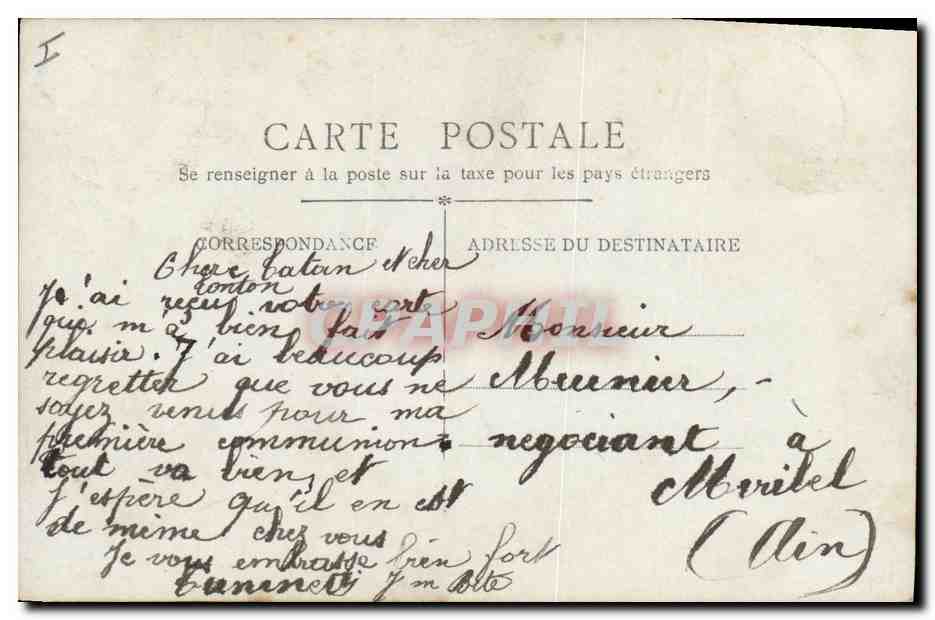 I
CARTE POSTALE
Se renseigner à la poste sur la taxe pour les pays étrangers
CORRESPONDANCE
Chere tatan et cher
tonton
J'ai reçus votre carte
qui m'a bien fait
plaisir. J'ai beaucoup
regretter que vous ne
soyez venus pour ma
première communion.
tout va bien, et
j'espère qu'il en est
de même chez vous
Je vous embrasse bien fort
ADRESSE DU DESTINATAIRE
Monsieur
Meunier,
negociant à
Miribel
(Ain)
CPAPHIL